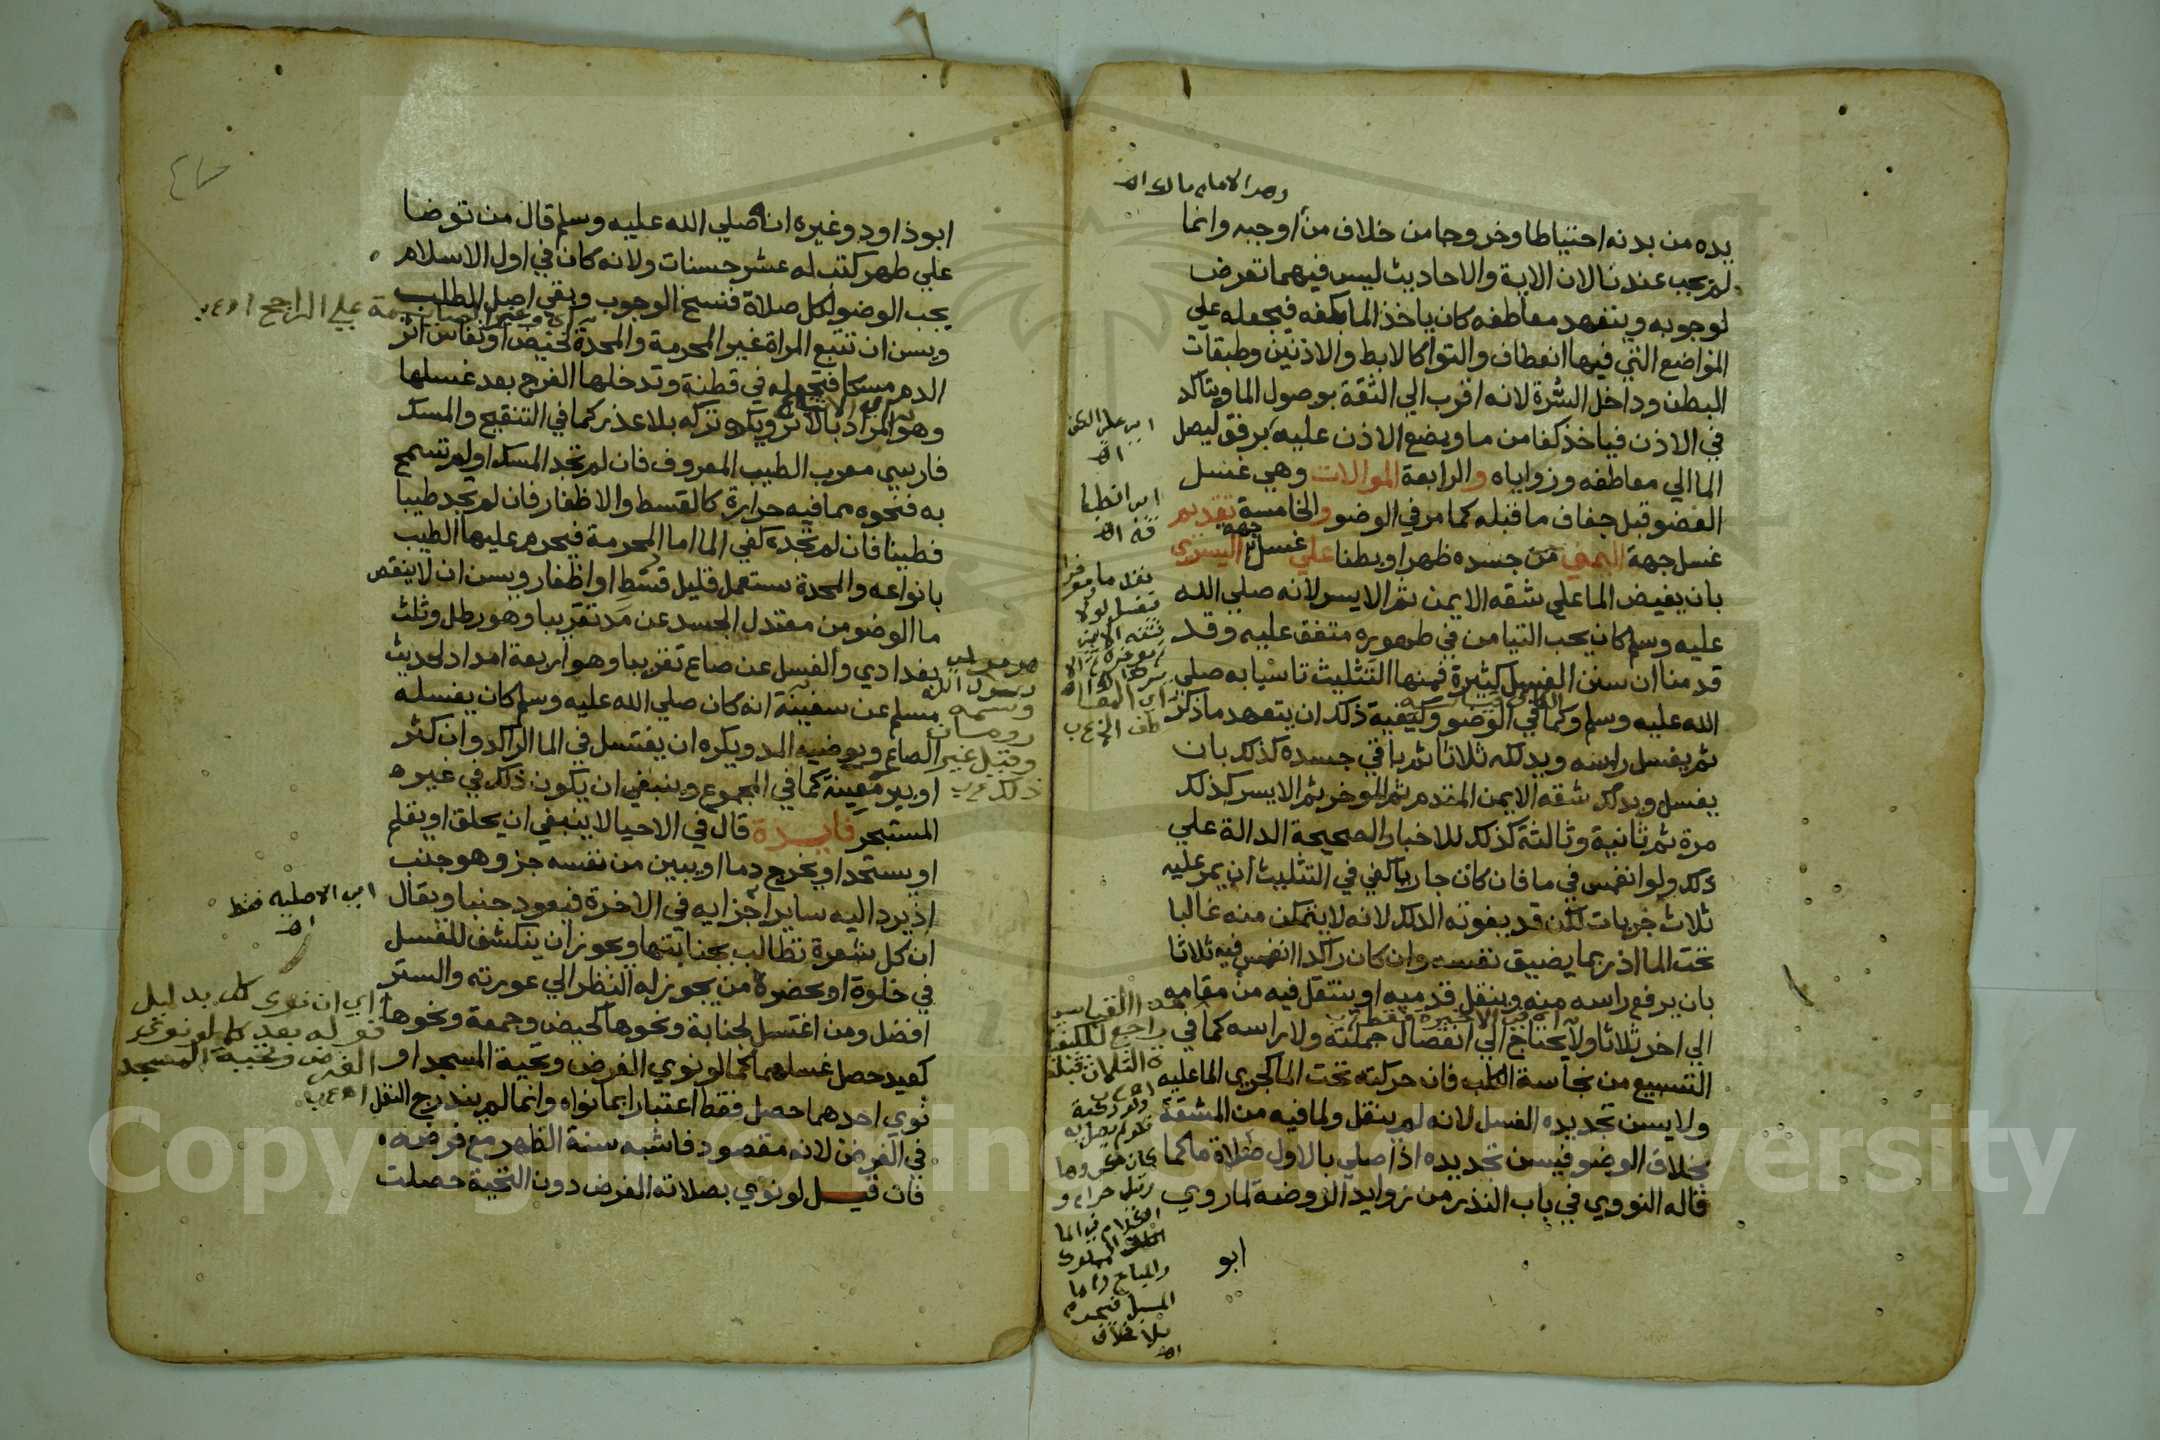 وهو الامام مالك اه
يده من بدنه احتياطا وخروجا من خلاف من اوجبه وانما
لم يجب عندنا لان الاية والاحاديث ليس فيهما تعرض
لوجوبه ويتعهد معاطفه كان ياخذ الما بكفه فيجعله علي
المواضع التي فيها انعطاف والتوا كالابط والاذنين وطبقات
البطن وداخل السرة لانه اقرب الي الثقة بوصول الما ويتاكد
في الاذن فياخذ كفا من ما ويضع الاذن عليه برفق ليصل
الما الي معاطفه وزواياه والرابعة الموالات وهي غسل
العضو قبل جفاف ما قبله كما مر في الوضو والخامسة تقديم
غسل جهة اليمني من جسده ظهرا وبطنا علي غسل جهة اليسري
بان يفيض الما علي شقه الايمن ثم الايسر لانه صلي الله
عليه وسلم كان يحب التيامن في طهوره متفق عليه وقد
قدمنا ان سنن الغسل كثيرة فمنها التثليث تاسيا به صلي
الله عليه وسلم وكما في الوضو وكيفية ذلك ان يتعهد ما ذكر
ثم يغسل راسه ويدلكه ثلاثا ثم باقي جسده كذلك بان
يغسل ويدلك شقه الايمن المقدم ثم الموخر ثم الايسر كذلك
مرة ثم ثانية وثالثة كذلك للاخبار الصحيحة الدالة علي
ذلك ولو انغمس في ما فان كان جاريا كفي في التثليث ان يمر عليه
ثلاث جريات لكن قد يفوته الدلك لانه لا يتمكن منه غالبا
تحت الما اذ ربما يضيق نفسه وان كان راكدا انغمس فيه ثلاثا
بان يرفع راسه منه وينقل قدميه او ينتقل فيه من مقامه
الي اخر ثلاثا ولا يحتاج الي انفصال جملته ولا راسه كما في
التسبيع من نجاسة الكلب فان حركته تحت الما كجري الما عليه
ولا يسن تجديده الغسل لانه لم ينقل ولما فيه من المشقة
بخلاف الوضو فيسن تجديده اذا صلي بالاول صلاة ما كما
قاله النووي في باب النذر من زوايد الروضة لما روي
ابو
ابوذاود وغيره انه صلي الله عليه وسلم قال من توضا
علي طهر كتب له عشر حسنات ولانه كان في اول الاسلام
يجب الوضو لكل صلاة فنسخ الوجوب وبقي اصل الطلب
ويسن ان تتبع المراة غير المحرمة والمحدة لحيض او نفاس اثر
الدم مسكا فتجعله في قطنة وتدخلها الفرج بعد غسلها
وهو المراد بالاثر ويكره تركه بلا عذر كما في التنقيح والمسك
فارسي معرب الطيب المعروف فان لم تجد المسك او لم تسمح
به فنحوه مما فيه حرارة كالقسط والاظفار فان لم تجد طيبا
فطينا فان لم تجده كفي الما اما المحرمة فيحرم عليها الطيب
بانواعه والمحدة تستعمل قليل قسط او اظفار ويسن ان لا ينقص
ما الوضو من معتدل الجسد عن مد تقريبا وهو رطل وثلث
بغدادي والغسل عن صاع تقريبا وهو اربعة امداد لحديث
مسلم عن سفينة انه كان صلي الله عليه وسلم كان يغسله
الصاع ويوضيه المد ويكره ان يغتسل في الما الراكد وان كثر
او بير معينة كما في المجموع وينبغي ان يكون ذلك في غيره
المستبحر فايدة قال في الاحيا لا ينبغي ان يحلق او يقلم
او يستحد او يخرج دما او يبين من نفسه جز وهو جنب
اذ يرد اليه ساير اجزايه في الاخرة فيعود جنبا ويقال
ان كل شعرة تطالب بجنابتها ويجوز ان ينكشف للغسل
في خلوة او بحضرة من يجوز له النظر الي عورته والستر
افضل ومن اغتسل لجنابة ونحوها كحيض وجمعة ونحوها
كعيد حصل غسلهما كما لو نوي الفرض وتحية المسجد او
نوي احدهما حصل فقط اعتبارا بما نواه وانما لم يندرج النفل
في الفرض لانه مقصود فاشبه سنة الظهر مع فرضه
فان قيل لو نوي بصلاته الفرض دون التحية حصلت
علي الراجح
اي الاصلية فقط
اه
اي ان نوي كل بدليل
قوله بعد كما لو نوي
الفرض وتحية المسجد
Copyright © King Saud University